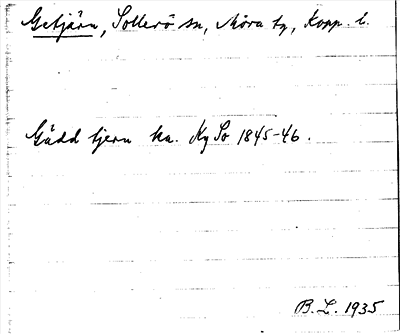 Getjärn, Sollerö sn, Mora tg, Kopp. l.
Gädd tjern ka. Ky So 1845-46.
B. L. 1935